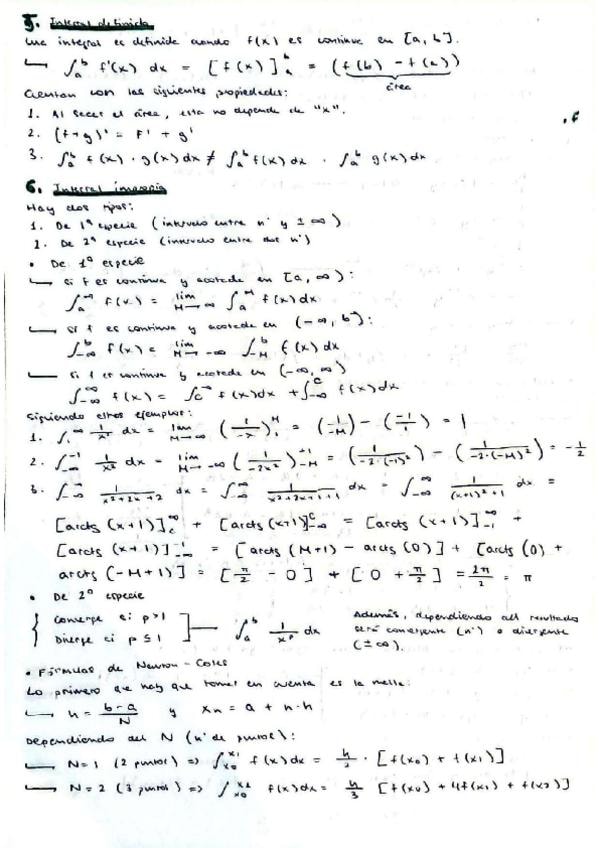 5. Integral definida
Una integral es definida cuando f(x) es continua en [a, b].
∫_a^b f'(x) dx = [f(x)]_a^b = (f(b) - f(a))
área
Cuentan con las siguientes propiedades:
1. Al sacar el área, esta no depende de "x".
2. (f+g)' = F' + g'
3. ∫_a^b f(x) · g(x) dx ≠ ∫_a^b f(x) dx · ∫_a^b g(x) dx
6. Integral impropia
Hay dos tipos:
1. De 1ª especie (intervalo entre nº y ± ∞)
2. De 2ª especie (intervalo entre dos nº)
• De 1ª especie
si f es continua y acotada en [a, ∞):
∫_a^∞ f(x) = lim_{M→∞} ∫_a^M f(x) dx
si f es continua y acotada en (-∞, b]:
∫_{-∞}^b f(x) = lim_{M→-∞} ∫_{-M}^b f(x) dx
si f es continua y acotada en (-∞, ∞)
∫_{-∞}^∞ f(x) = ∫_c^∞ f(x) dx + ∫_{-∞}^c f(x) dx
Siguiendo estos ejemplos:
1. ∫_1^∞ 1/x² dx = lim_{M→∞} (1/-x)_1^M = (1/-M) - (-1/1) = 1
2. ∫_{-∞}^{-1} 1/x³ dx = lim_{M→-∞} (1/-2x²)_{-M}^{-1} = (1/-2·(-1)²) - (1/-2·(-M)²) = -1/2
3. ∫_{-∞}^∞ 1/x²+2x+2 dx = ∫_{-∞}^∞ 1/x²+2x+1+1 dx = ∫_{-∞}^∞ 1/(x+1)²+1 dx =
[arctg (x+1)]_c^∞ + [arctg (x+1)]_{-∞}^c = [arctg (x+1)]_{-1}^∞ +
[arctg (x+1)]_{-∞}^{-1} = [arctg (M+1) - arctg (0)] + [arctg (0) +
arctg (-M+1)] = [π/2 - 0] + [0 + π/2] = 2π/2 = π
• De 2ª especie
{ Converge si p>1
Diverge si p≤1 ] ∫_a^b 1/x^p dx
Además, dependiendo del resultado
será convergente (nº) o divergente
(±∞).
• Fórmulas de Newton-Cotes
Lo primero que hay que tomar en cuenta es la malla:
h = b-a/N y xn = a + n·h
Dependiendo del N (nº de puntos):
N=1 (2 puntos) => ∫_{x0}^{x1} f(x) dx = h/2 · [f(x0) + f(x1)]
N=2 (3 puntos) => ∫_{x0}^{x2} f(x) dx = h/3 [f(x0) + 4f(x1) + f(x2)]